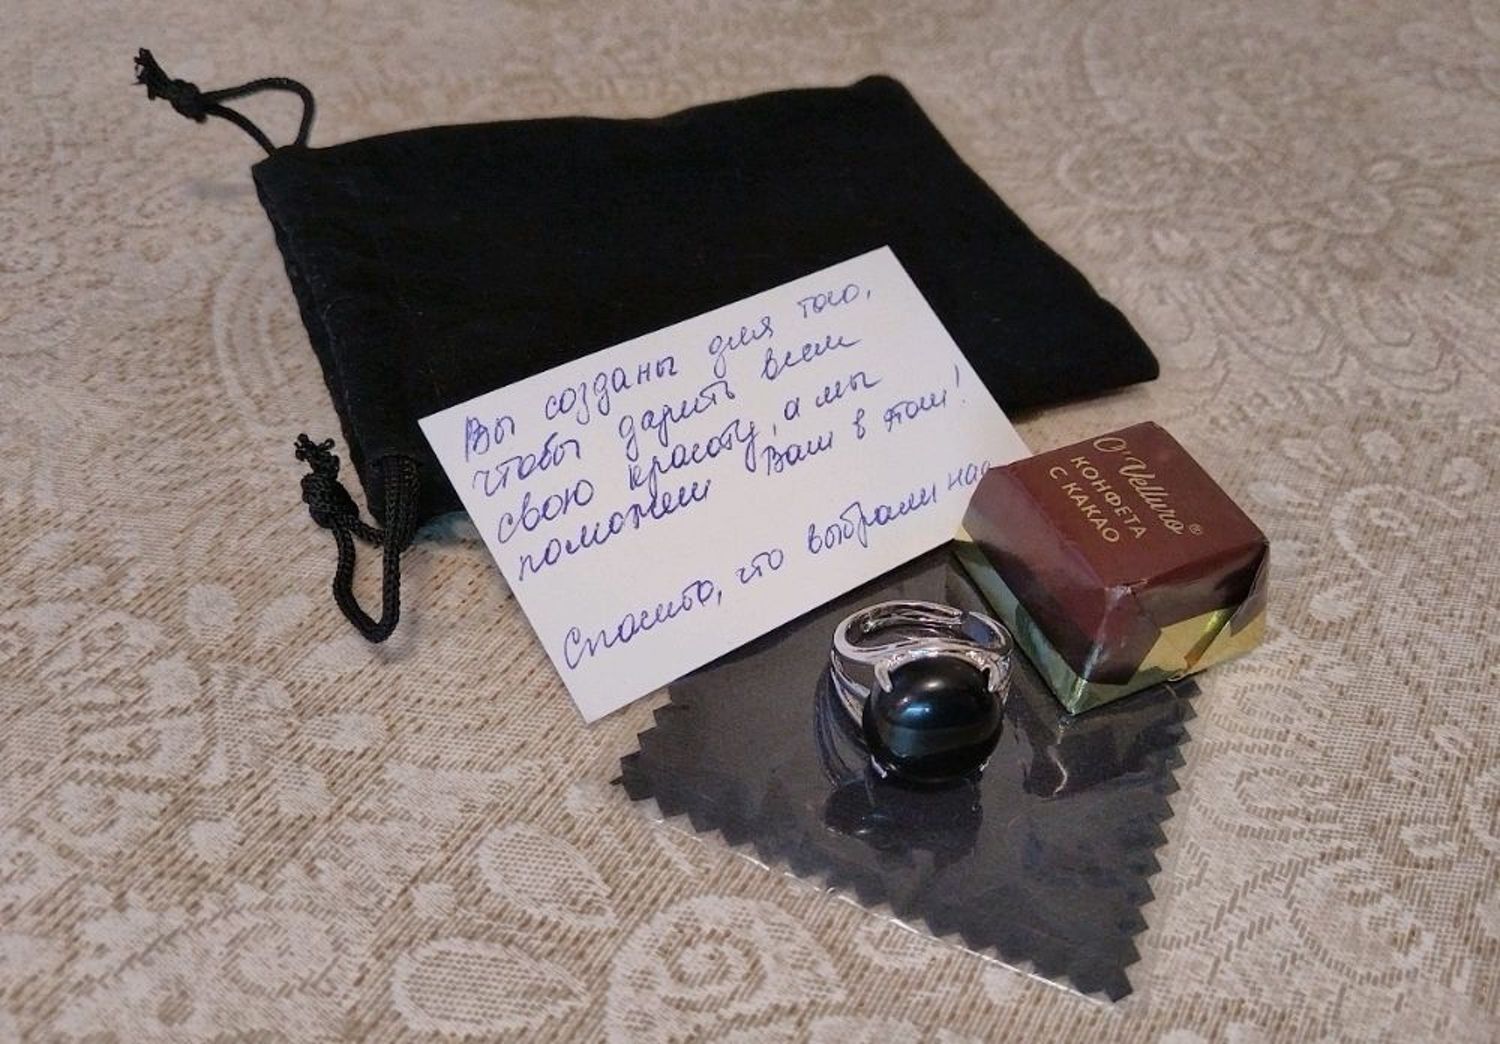 Вы созданы для того,
чтобы дарить всем
свою красоту, а мы
поможем Вам в этом!
Спасибо, что выбрали нас
O'Velluro®
КОНФЕТА
С КАКАО